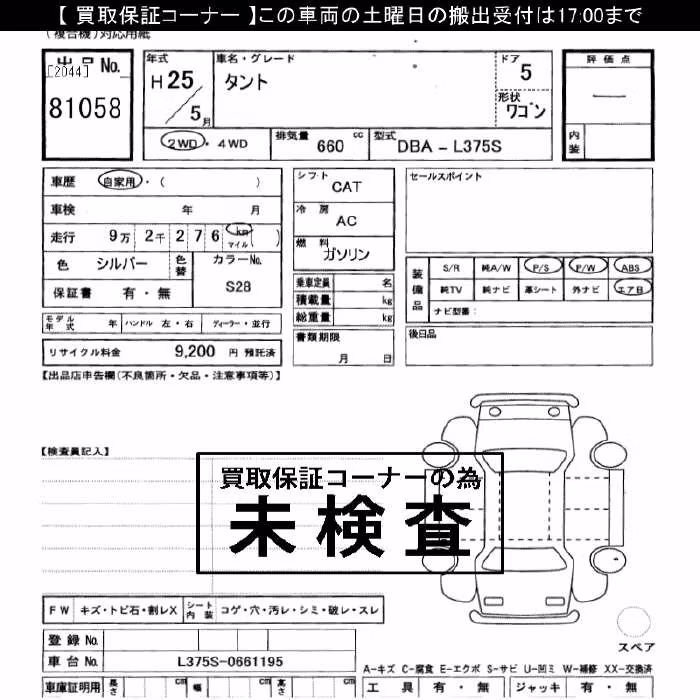 【 買取保証コーナー 】この車両の土曜日の搬出受付は17:00まで
(複合機)対応用紙
出品No.
[2044]
81058
年式
H25
5月
車名・グレード
タント
ドア
5
形状
ワゴン
評価点
―
内装
2WD・4WD
排気量 660 cc
型式 DBA - L375S
車歴 自家用・( )
車検 年 月
走行 9万 2千 2 7 6 km マイル ( )
色 シルバー 色替
カラーNo. S28
保証書 有・無
モデル年式 年 ハンドル 左・右 ディーラー・並行
リサイクル料金 9,200 円 預託済
シフト CAT
冷房 AC
燃料 ガソリン
乗車定員 名
積載量 kg
総重量 kg
書類期限
月 日
セールスポイント
装備品
S/R 純A/W P/S P/W ABS
純TV 純ナビ 革シート 外ナビ エアB
ナビ型番:
後日品
【出品店申告欄(不良箇所・欠品・注意事項等)】
【検査員記入】
買取保証コーナーの為
未検査
FW キズ・トビ石・割レX シート内装 コゲ・穴・汚レ・シミ・破レ・スレ
登録No.
車台No. L375S-0661195
車庫証明用 長さ cm 幅 cm 高さ cm
スペア
A-キズ C-腐食 E-エクボ S-サビ U-凹ミ W-補修 XX-交換済
工具 有・無 ジャッキ 有・無